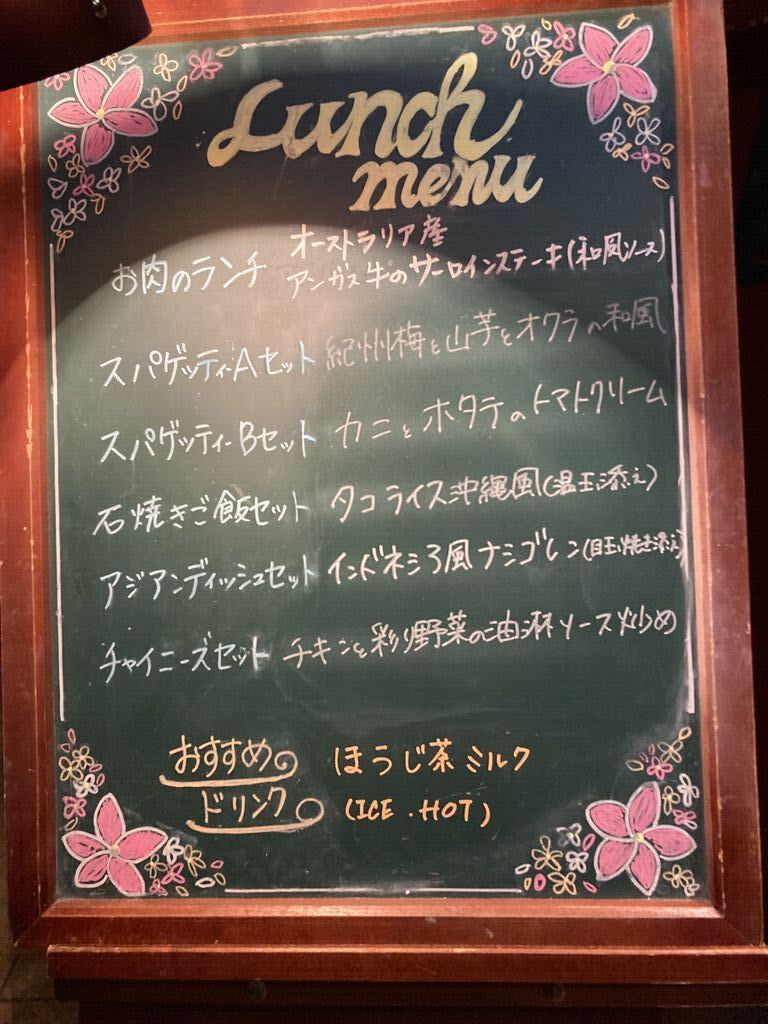 Lunch
menu
お肉のランチ オーストラリア産
アンガス牛のサーロインステーキ(和風ソース)
スパゲッティーAセット 紀州梅と山芋とオクラの和風
スパゲッティーBセット カニとホタテのトマトクリーム
石焼きご飯セット タコライス沖縄風(温玉添え)
アジアンディッシュセット インドネシア風ナシゴレン(目玉焼き添え)
チャイニーズセット チキンと彩り野菜の油淋ソース炒め
おすすめ ほうじ茶ミルク
ドリンク (ICE・HOT)